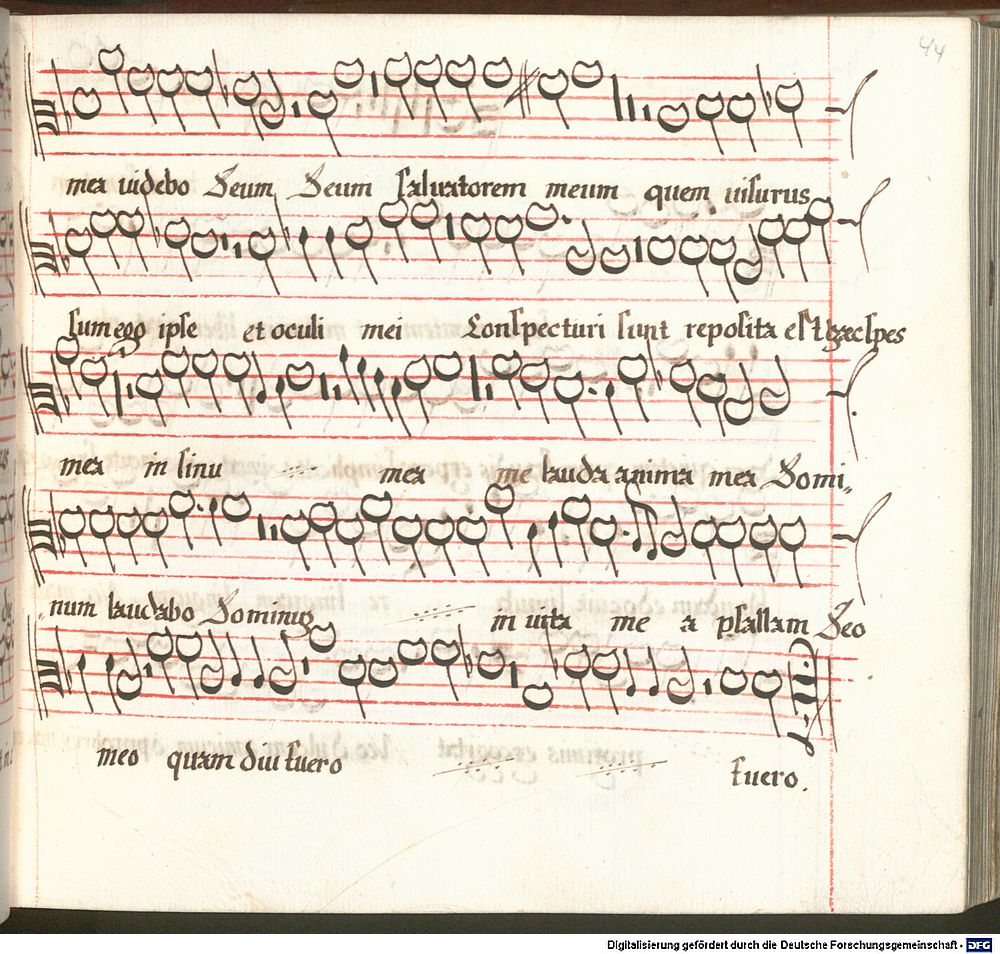 44
mea uidebo Deum Deum saluatorem meum quem uisurus
sum ego ipse et oculi mei Conspecturi sunt reposita est haec spes
mea in sinu mea me lauda anima mea Domi„
num laudabo Dominum in uita me a psallam Deo
meo quam diu fuero fuero.
Digitalisierung gefördert durch die Deutsche Forschungsgemeinschaft - DFG